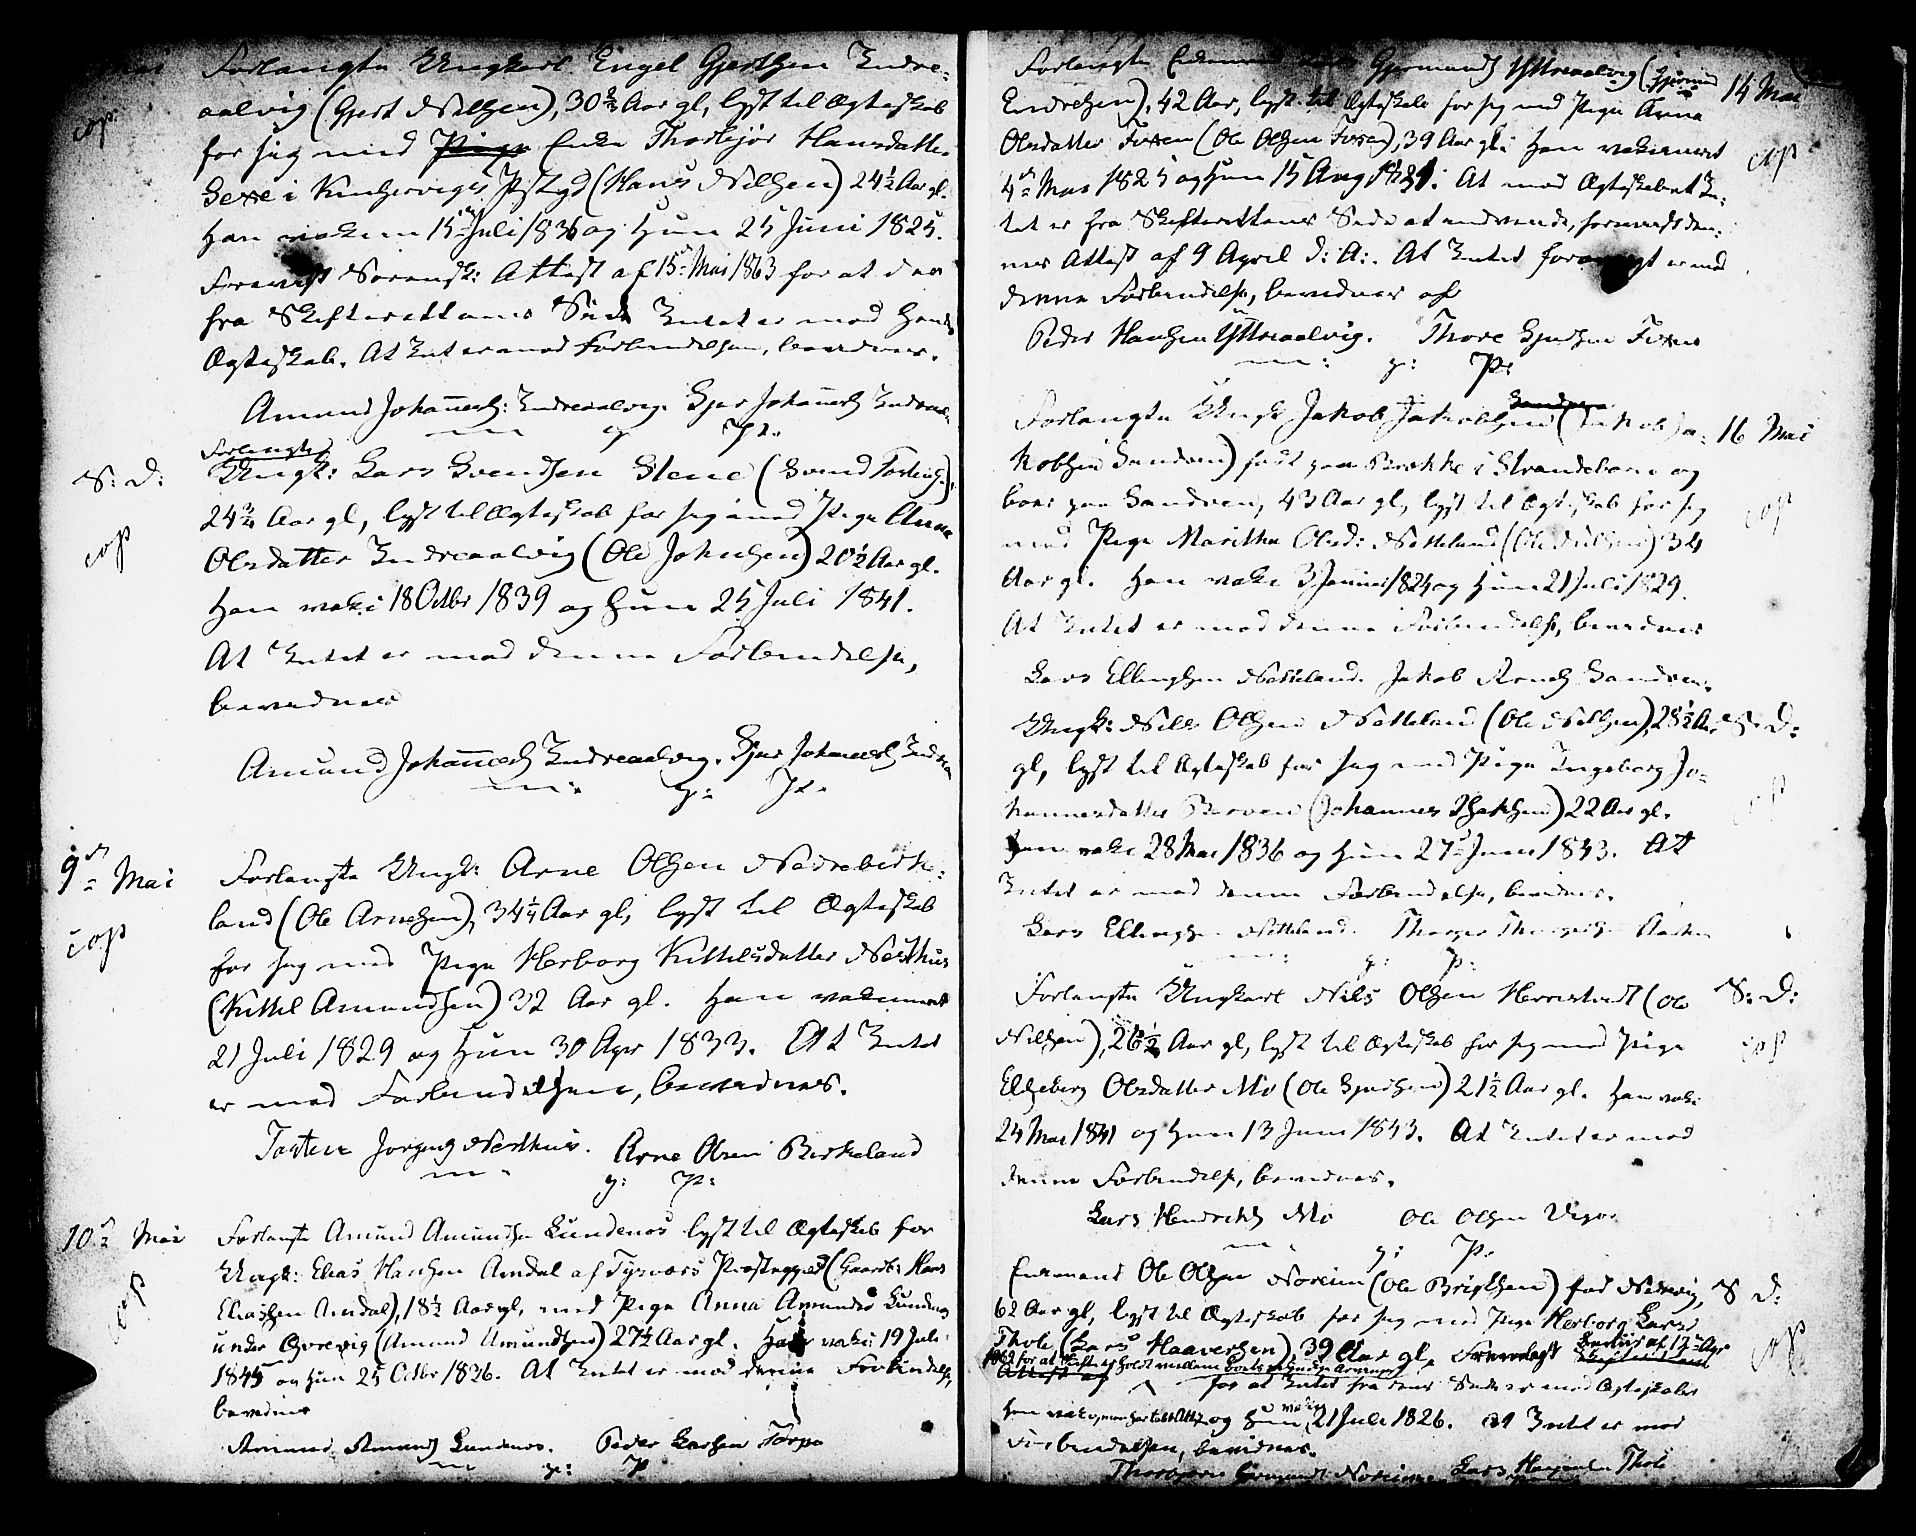 Mai Forlangte Ungkarl Engel Gjertsen Indre-
cop. aalvig (Gjert Nilsen), 30 3/4 Aar gl, lyst til Ægteskab
for sig med Pige Enke Thorbjør Hansdatter
Sexe i Kinservigs Pstgd (Hans Nilsen) 24 1/2 Aar gl.
Han vakc 15 Juli 1836 og Hun 25 Juni 1825.
Forevist Sorensk: Attest af 15de Mai 1863 for at der
fra Skifterettens Side Intet er mod Hendes
Ægteskab. At Intet er mod Forbindelsen, bevidnes.
Amund Johannes: Indreaalvig. Sjur Johannes Indreaal
m: g: P:
Forlangte
S: D: Ungk: Lars Svendsen Stene (Svend Torkels),
24 3/4 Aar gl, lyst til Ægteskab for sig med Pige Anna
cop Olsdatter Indreaalvig (Ole Johnsen) 20 1/2 Aar gl.
Han vakc: 18 Octbr 1839 og Hun 25 Juli 1841.
At Intet er mod denne Forbindelse,
bevidnes
Amund Johannes Indreaalvig. Sjur Johannes Indrea
m: g: P:
9de Mai Forlangte Ungk: Arne Olsen Nedrebirke-
land (Ole Arnesen), 34 1/4 Aar gl, lyst til Ægteskab
cop for sig med Pige Herborg Kittelsdatter Nesthus
(Kittel Amundsen) 32 Aar gl. Han vakcineret
21 Juli 1829 og Hun 30 Apr 1833. At Intet
er mod Forbindelsen, bevidnes.
Tosten Jørgens Nesthus. Arne Olsen Birkeland
m: g: P:
10de Mai Forlangte Amund Amundsen Lundenes lyst til Ægteskab for
cop Ungk: Elias Hansen Amdal af Tysværs Præstegjeld (Gaardbr: Hans
Eliassen Amdal), 18 1/2 Aar gl, med Pige Anna Amunds Lundenes
under Øvrevig (Amund Amundsen) 27 1/2 Aar gl. Han vakc: 19 Juli
1845 og Hun 25 Octbr 1836. At Intet er mod denne Forbindelse,
bevidnes
Amund Amunds Lundenes. Peder Larsen Torpe
m: g: P:
Forlangte Enkemand Gjermunds Yttreaalvig (Gjermund 14 Mai
Endresen), 42 Aar, lyst til Ægteskab for sig med Pige Anna
Olsdatter Foxen (Ole Olsen Foxen), 39 Aar gl. Han vakcineret cop
4de Mai 1825 og Hun 15 Aug 1831. At mod Ægteskabet In-
tet er fra Skifterettens Side at indvende, forevist den-
nes Attest af 9 April d: A:. At Intet forøvrigt er mod
denne Forbindelse, bevidnes af
Peder Hansen Yttreaalvig. Thore Sjursen Foxen
m: g: P:
Forlangte Ungk Jakob Jakobsen Sandven (Jakob Ja- 16 Mai
kobsen Sandven) født paa Brekke i Strandebarm og
boer paa Sandven, 43 Aar gl, lyst til Ægteskab for sig cop
med Pige Maritha Olsd: Netteland (Ole Nilsen) 34
Aar gl. Han vakc 3 Januari 1824 og Hun 21 Juli 1829.
At Intet er mod denne Forbindelse, bevidnes
Lars Ellingsen Netteland. Jakob Arnes Sandven.
Ungk: Nils Olsen Netteland (Ole Nilsen), 28 1/2 Aar S: D:
gl, lyst til Ægteskab for sig med Pige Ingeborg Jo-
hannesdatter Berven (Johannes Isaksen) 22 Aar gl. cop
Han vakc 28 Mai 1836 og Hun 27de Juni 1843. At
Intet er mod denne Forbindelse, bevidnes.
Lars Ellingsen Netteland.
m: g: P:
Forlangte Ungkarl Nils Olsen Herrestvedt (Ole S: D:
Nilsen), 26 1/2 Aar gl, lyst til Ægteskab for sig med Pige cop
Elsebærg Olsdatter Mo (Ole Sjursen) 21 1/2 Aar gl. Han vakc:
24 Mai 1841 og Hun 13 Juni 1843. At Intet er mod
denne Forbindelse, bevidnes.
Lars Hendriks Mo Ole Olsen
m: g: P:
Enkemand Ole Olsen Noreim (Ole Brigtsen) fød S: D:
62 Aar gl, lyst til Ægteskab for sig med Pige Herborg Larsd
Tholo (Lars Haaversen), 39 Aar gl. Forevist cop
for at Intet fra dens Side er mod Ægteskabet
Han vakc, og Hun vakc 21 Juli 1826. At Intet er mod
Forbindelsen, bevidnes.
Noreim. Lars Tholo